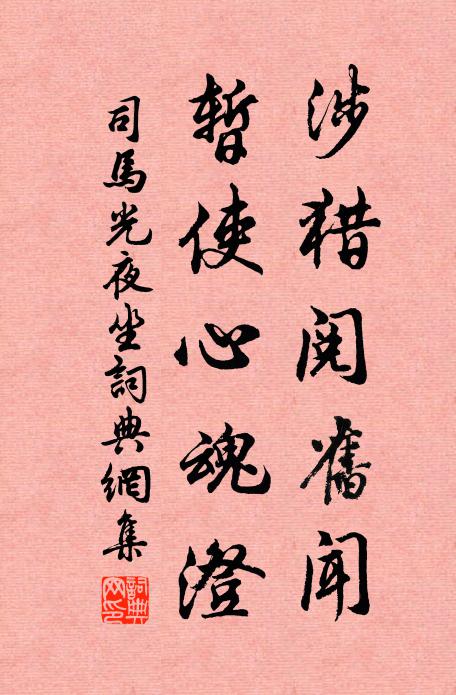 涉猎阅舊闻
暫使心魂澄
司馬光夜坐詞典網集
詞典网印